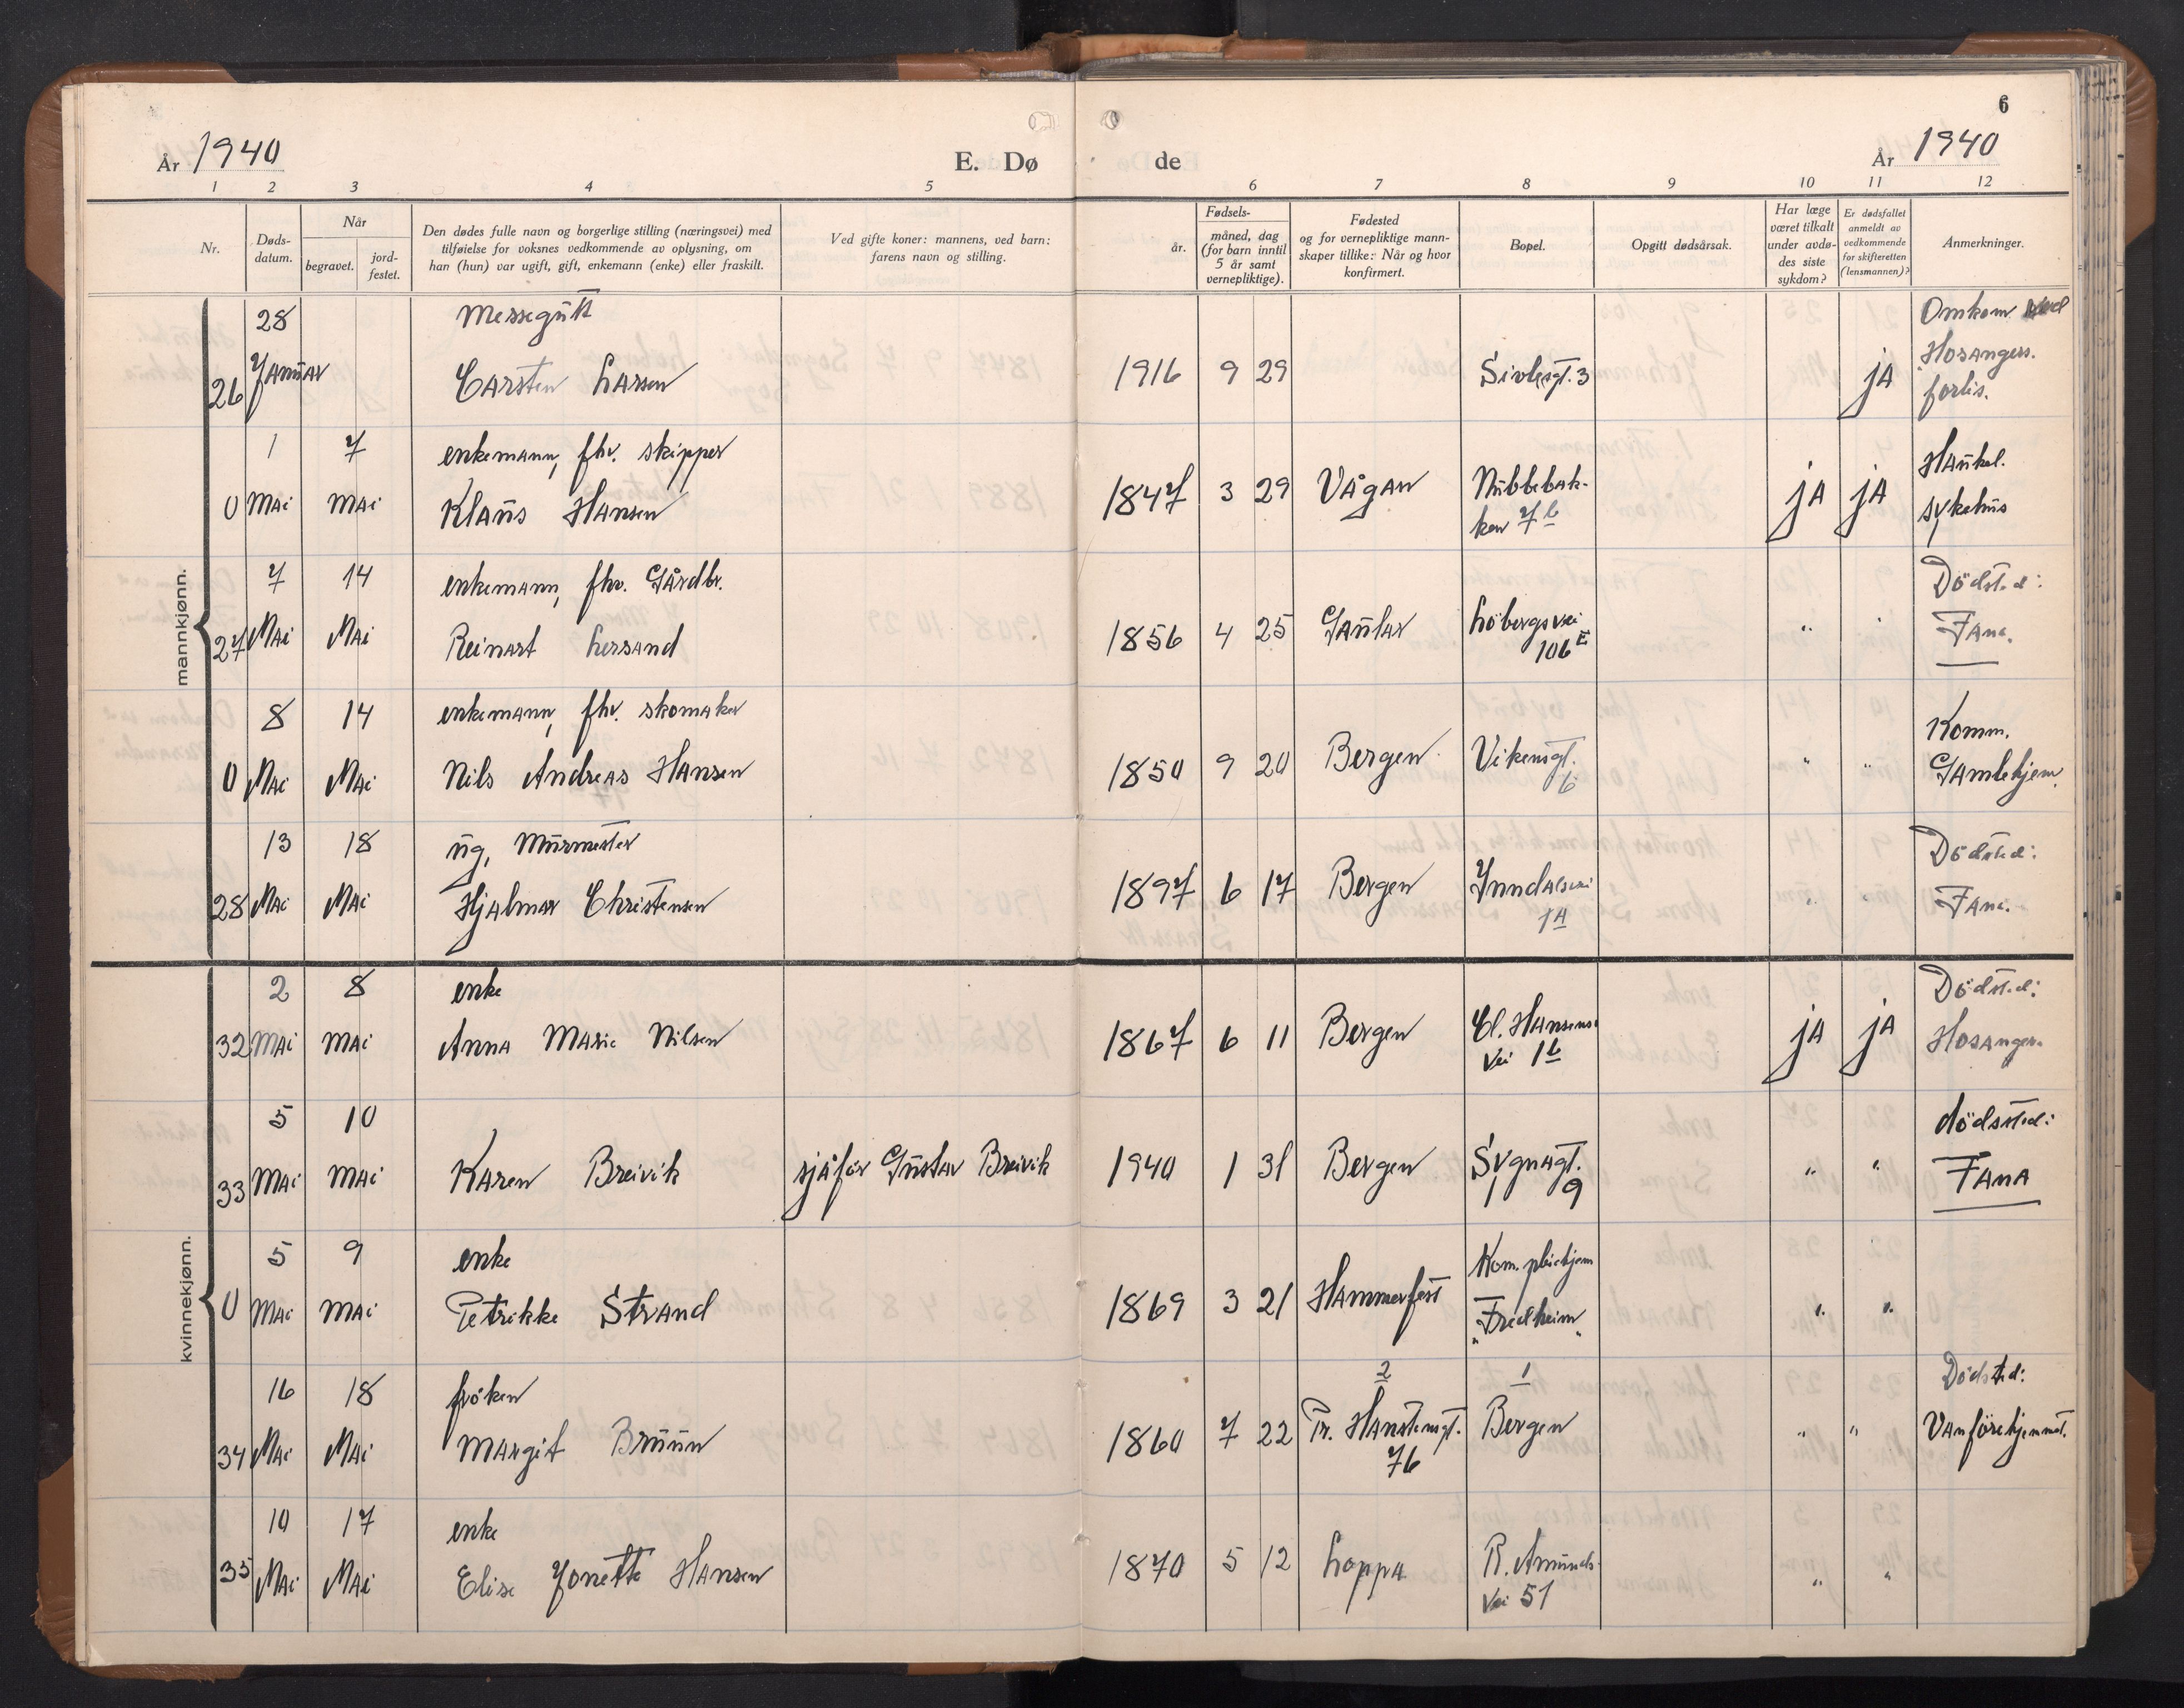 6
År 1940
E. Dø de
År 1940
1 2 3 4 5 6 7 8 9 10 11 12
Nr.
Døds-
datum.
Når
begravet.
jord-
festet.
Den dødes fulle navn og borgerlige stilling (næringsvei) med
tilføielse for voksnes vedkommende av oplysning, om
han (hun) var ugift, gift, enkemann (enke) eller fraskilt.
Ved gifte koner: mannens, ved barn:
farens navn og stilling.
år.
Fødsels-
måned, dag
(for barn inntil
5 år samt
vernepliktige).
Fødested
og for vernepliktige mann-
skaper tillike: Når og hvor
konfirmert.
Bopel.
Opgitt dødsårsak.
Har læge
været tilkalt
under avdø-
des siste
sykdom?
Er dødsfallet
anmeldt av
vedkommende
for skifteretten
(lensmannen)?
Anmerkninger.
mannkjønn.
28 Messegutt Omkom ved
26 Januar Carsten Larsen 1916 9 29 Sivlegt. 3 ja Hosangers.
forlis.
1 7 enkemann, fhv. skipper Haukel.
0 Mai Mai Klaus Hansen 1847 3 29 Vågan Nubbebak- ja ja sykehus
ken 7b
7 14 enkemann, fhv. Gårdbr. Dödsted:
27 Mai Mai Reinart Lersand 1856 4 25 Gaular Löbergsvei " " Fana.
106 II
8 14 enkemann, fhv. skomaker Komm.
0 Mai Mai Nils Andreas Hansen 1850 9 20 Bergen Vikensgt. " " Gamlehjem.
6
13 18 ug, Murmester Dödsted:
28 Mai Mai Hjalmar Christensen 1897 6 17 Bergen Inndalsvei Fana.
1A
kvinnekjønn.
2 8 enke Dödsted:
32 Mai Mai Anna Marie Nilsen 1867 6 11 Bergen Cl. Hansens ja ja Hosanger.
vei 1b
5 10 dödssted:
33 Mai Mai Karen Breivik sjåför Gustav Breivik 1940 1 31 Bergen Sygnagt. " " Fana
9
5 9 enke Kom. pleiehjem
0 Mai Mai Petrikke Strand 1869 3 21 Hammerfest "Fredheim" " "
2 1
16 18 fröken Dödsted:
34 Mai Mai Margit Bruun 1860 7 22 Pr. Hanstensgt. Bergen " " Vanförehjemmet.
76
10 17 enke
35 Mai Mai Elise Jonette Hansen 1870 5 12 Loppa R. Amunds. " "
vei 51